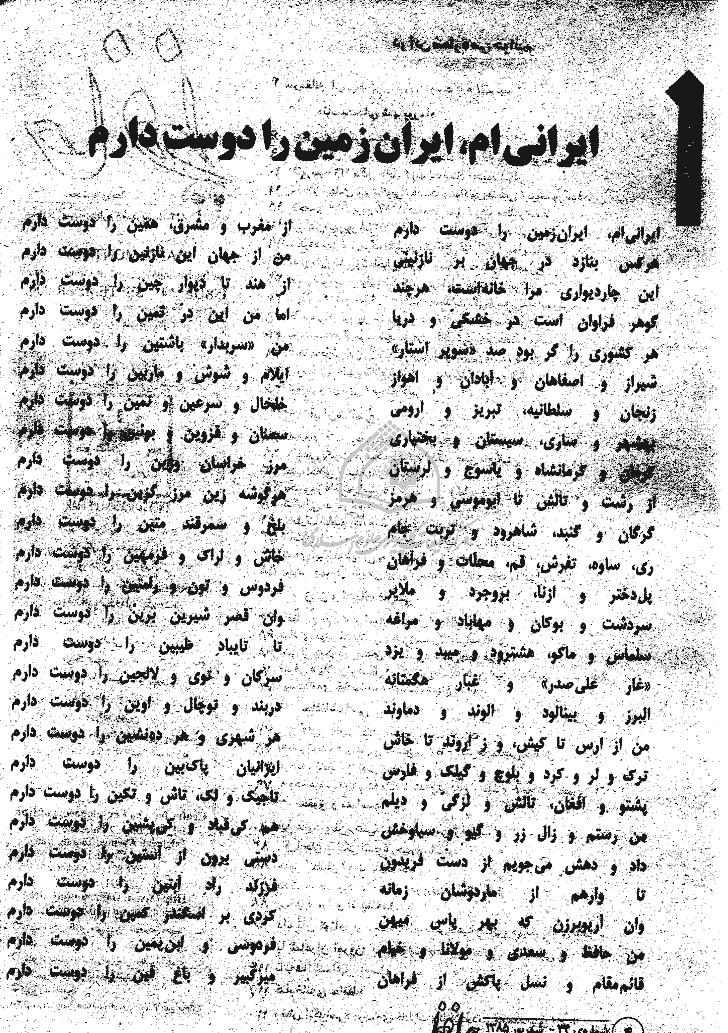 ایرانی‌ام، ایران‌زمین را دوست دارم
ایرانی‌ام، ایران‌زمین را دوست دارم از مغرب و مشرق، همین را دوست دارم
هرکس بنازد در جهان بر نازنینی من از جهان این نازنین را دوست دارم
این چاردیواری مرا خانه‌است، هرچند از هند تا دیوار چین را دوست دارم
گوهر فراوان است در خشکی و دریا اما من این در ثمین را دوست دارم
هر کشوری را گر بود صد «سوپر استار» من «سربدار» باشتین را دوست دارم
شیراز و اصفاهان و آبادان و اهواز ایلام و شوش و ماربین را دوست دارم
زنجان و سلطانیه، تبریز و ارومی خلخال و سرعین و نمین را دوست دارم
بهشهر و ساری، سیستان و بختیاری سمنان و قزوین و بوئین را دوست دارم
کرمان و کرمانشاه و یاسوج و لرستان مرز خراسان را دوست دارم
از رشت و تالش تا ابوموسی و هرمز هرگوشه زین مرز گزین را دوست دارم
گرگان و گنبد، شاهرود و تربت جام بلخ و سمرقند متین را دوست دارم
ری، ساوه، تفرش، قم، محلات و فراهان خاش و اراک و فرمهین را دوست دارم
پل‌دختر و ازنا، بروجرد و ملایر فردوس و تون و رامین را دوست دارم
سردشت و بوکان و مهاباد و مراغه وان قصر شیرین برین را دوست دارم
سلماس و ماکو، هشترود و میبد و یزد تا تایباد طیبین را دوست دارم
«غار علی‌صدر» و غبار هگمتانه سرکان و خوی و لالجین را دوست دارم
البرز و بینالود و الوند و دماوند دربند و توچال و اوین را دوست دارم
من از ارس تا کیش، و ز اروند تا خاش هر شهری و هر ده‌نشین را دوست دارم
ترک و لر و کرد و بلوچ و گیلک و فارس ایرانیان پاک‌بین را دوست دارم
پشتو و افغان، تالش و لزگی و دیلم تاجیک و لک، تاش و تکین را دوست دارم
من رستم و زال زر و گیو و سیاوخش هم کی‌قباد و کی‌پشین را دوست دارم
داد و دهش می‌جویم از دست فریدون دستی برون از آستین را دوست دارم
تا وارهم از ماردوشان زمانه فرزند راد آبتین را دوست دارم
وان آریوبرزن که بهر پاس میهن کردی بر اسکندر کمین را دوست دارم
من حافظ و سعدی و مولانا و خیام فردوسی و ابن‌یمین را دوست دارم
قائم‌مقام و نسل پاکش از فراهان میرکبیر و باغ فین را دوست دارم